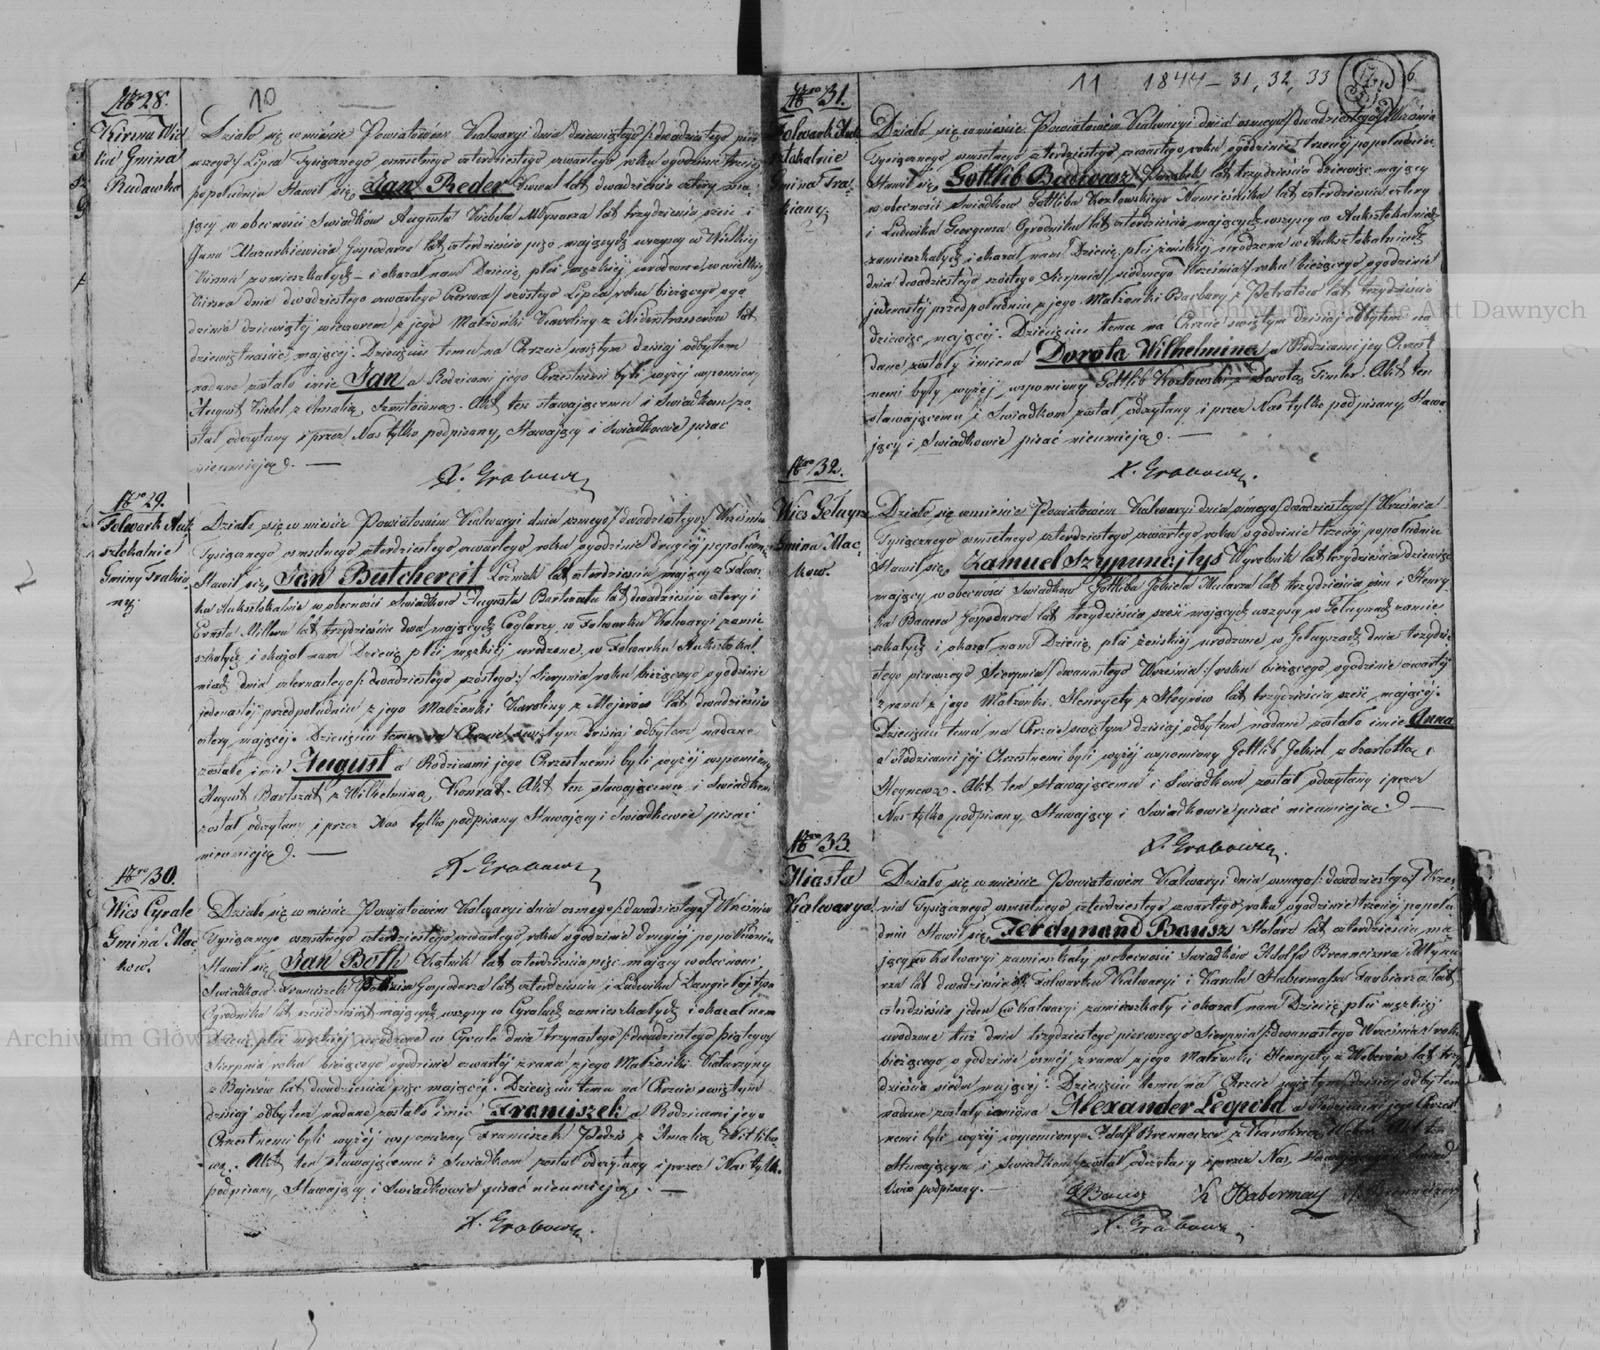 10
No 28.
Kirsna Wiel
ka Gmina
Rudawka
Działo się w mieście Powiatowém Kalwaryi dnia dziewiątego /: dwudziestego pier
wszego / Lipca Tysiącznego osmsetnego czterdziestego czwartego roku o godzinie trzeciej
po południu Stawił się Jan Reder Kowal lat dwadzieścia cztery ma-
jący, w obecności Swiadków Augusta Kiebela Młynarza lat trzydzieścia sześć i
Jana Mazurkiewicza Gospodarza lat czterdzieści pięć mających wszyscy w Wielkiej
Kirsnie zamieszkałych – i okazał nam Dziecię płci męzkiéj urodzone w wielkiej
Kirsna dnia dwudziestego czwartego Czerwca / szóstego Lipca / roku bieżącego o go
dzinie dziewiątej wieczorem z jego Małżonki Karoliny z Niderstrasserów lat
dziewiętnaście mającej. Dziecięciu temu na Chrzcie świętym dzisiaj odbytem
nadane zostało imie Jan a Rodzicami jego Chrzestnemi byli wyżej wspomniony
August Kiebel z Amalią . Akt ten stawającemu i Swiadkom zo-
stał odczytany i przez Nas tylko podpisany, Stawający i Swiadkowie pisać
nieumieją. —
X. Grabowski
Nro 29.
Folwark Auk
sztokalnie
Gminy Trakia
ny
Działo się w mieście Powiatowém Kalwaryi dnia osmego / dwudziestego / Września
Tysiącznego osmsetnego czterdziestego czwartego roku o godzinie drugiéj po połudn
Stawił się Jan Butchereit lat czterdzieści mający z Folwar
ku Auksztokalnie w obecności Swiadków Augusta Bartszata lat dwadzieścia cztery i
Ernsta Millera lat trzydzieścia dwa mających Ceglarzy, w Folwarku Kalwaryi zamie
szkałych i okazał nam Dziecię płci męzkiéj urodzone w Folwarku Auksztokal
niach dnia czternastego /: dwudziestego szóstego :/ Sierpnia / roku bieżącego o godzinie
jedenastéj przed południem z jego Małżonki Karoliny z Mejerów lat dwadzieścia
cztery mającej. Dziecięciu temu na Chrzcie świętym dzisiaj odbytem nadane
zostało imie August a Rodzicami jego Chrzestnemi byli wyżej wspomniony
August Bartszat z Wilhelminą Konrat. Akt ten stawającemu i Swiadkom
został odczytany i przez Nas tylko podpisany Stawający i Swiadkowie pisać
nieumieją. —
X. Grabowski
Nro 30.
Wieś Cyrale
Gmina Mac
kow.
Działo się w mieście Powiatowém Kalwaryi dnia osmego /: dwudziestego / Września
Tysiącznego osmsetnego czterdziestego czwartego roku o godzinie drugiéj po południu
Stawił się Jan Both lat czterdzieścia pięć mający w obecności
Swiadków Franciszek Gospodarza lat czterdzieścia i Ludwika
Ogrodnika lat sześćdziesiąt mających wszyscy w Cyralach zamieszkałych i okazał nam
Dziecię płci męzkiej urodzone w Cyrale dnia trzynastego /: dwudziestego piątego
Sierpnia roku bieżącego o godzinie czwartéj z rana z jego Małżonki Katarzyny
z Bajerów lat dwadzieścia pięć mającej. Dziecięciu temu na Chrzcie świętym
dzisiaj odbytem nadane zostało imie Franciszek a Rodzicami jego
Chrzestnemi byli wyżej wspomniony Franciszek z Amalią
. Akt ten stawającemu i Swiadkom został odczytany i przez Nas tylko
podpisany, Stawający i Swiadkowie pisać nieumieją. —
X. Grabowski.
11 1844 – 31, 32, 33 6
Nro 31.
Folwark Auk
sztokalnie
Gmina Tra
kiany
Działo się w mieście Powiatowém Kalwaryi dnia osmego / dwudziestego / Września
Tysiącznego osmsetnego czterdziestego czwartego roku o godzinie trzeciéj po południu
Stawił się Gottlib Budwasz Parobek lat trzydzieścia dziewięć mający
w obecności Swiadków Gottliba Kozłowskiego Namiestnika lat czterdzieścia cztery
i Ludwika Georgena Ogrodnika lat czterdzieścia mających wszyscy w Auksztokalniach
zamieszkałych i okazał nam Dziecię płci żeńskiej urodzone w Auksztokalniach
dnia dwudziestego szóstego Sierpnia / siódmego Września / roku bieżącego o godzinie
jedenastéj przed południem z jego Małżonki Barbary z Petratów lat trzydzieścia
dziewięć mającej. Dziecięciu temu na Chrzcie świętym dzisiaj odbytem na
dane zostały imiona Dorota Wilhelmina a Rodzicami jej Chrzest
nemi byli wyżéj wspomniony Gottlib Kozłowski z Dorotą . Akt ten
stawającemu i Swiadkom został odczytany i przez Nas tylko podpisany, Stawa
jący i Swiadkowie pisać nieumieją. —
X. Grabowski.
Nro 32.
Wieś Geługi
Gmina Mac
kow.
Działo się w mieście Powiatowém Kalwaryi dnia osmego / dwudziestego / Września
Tysiącznego osmsetnego czterdziestego czwartego roku o godzinie trzeciéj po południu
Stawił się Zamuel Szypunejtys Wyrobnik lat trzydzieścia dziewięć
mający w obecności Swiadków Gottliba Jekiela Mularza lat trzydzieścia i Henry
ka Bauera Gospodarza lat trzydzieścia sześć mających wszyscy w zamie
szkałych i okazał nam Dziecię płci żeńskiej urodzone w dnia trzydzie
stego pierwszego Sierpnia / dwunastego Września :/ roku bieżącego o godzinie czwartéj
z rana z jego Małżonki Henryety z Heynów lat trzydzieścia sześć mającej.
Dziecięciu temu na Chrzcie świętym dzisiaj odbytem nadane zostało imie Anna
a Rodzicami jej Chrzestnemi byli wyżej wspomniony Gottlib Jekiel z Karlottą
Heynową. Akt ten Stawającemu i Swiadkom został odczytany i przez
Nas tylko podpisany, Stawający i Swiadkowie pisać nieumieją. —
X. Grabowski.
Nro 33.
Miasta
Kalwarya
Działo się w mieście Powiatowém Kalwaryi dnia osmego /: dwudziestego / Wrze
nia Tysiącznego osmsetnego czterdziestego czwartego roku o godzinie trzeciéj po połu
dniu Stawił się Ferdynand Bausz Stolarz lat czterdzieścia ma
jący w Kalwaryi zamieszkały w obecności Swiadków Adolfa Brenneizera Młyna
rza lat dwadzieścia z Folwarku Kalwaryi i Karola Habermajsa Farbiarza lat
czterdzieścia jeden w Kalwaryi zamieszkały i okazał nam Dziecię płci męzkiéj
urodzone tuż dnia trzydziestego pierwszego Sierpnia /: dwunastego Września / roku
bieżącego o godzinie ósméj z rana z jego Małżonki Henryety z Weberów lat trzy
dzieścia siedm mającej. Dziecięciu temu na Chrzcie świętym dzisiaj odbytem
nadane zostały imiona Alexander Leopold a Rodzicami jego Chrzest
nemi byli wyżéj wspomniony Adolf Brenneizer z Karoliną Weber. Akt ten
Stawającym i Swiadkom został odczytany i przez Nas, stawającego i Swiad
ków podpisany. —
FBausz K Habermaÿ A. Brenneizer
X. Grabowski
Archiwum Główne Akt Dawnych
Archiwum Główne Akt Dawnych